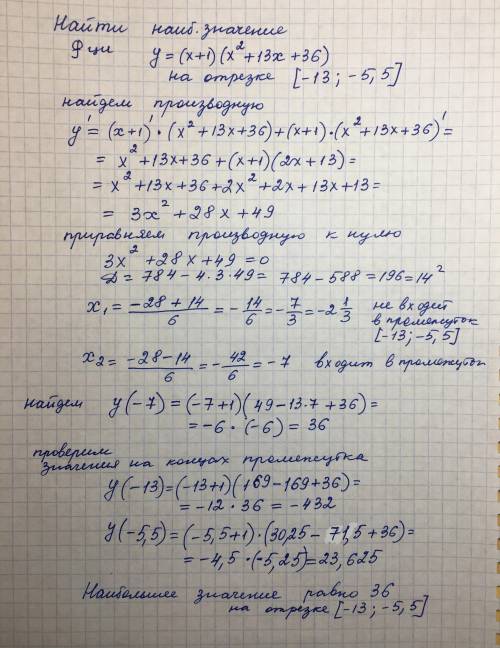 Найти наиб. значение
Ф ции y = (x+1)(x²+13x+36)
на отрезке [-13; -5,5]
найдем производную
y' = (x+1)' · (x²+13x+36)+(x+1)·(x²+13x+36)' =
= x²+13x+36+(x+1)(2x+13) =
= x²+13x+36+2x²+2x+13x+13 =
= 3x²+28x+49
приравняем производную к нулю
3x²+28x+49 = 0
D = 784 - 4·3·49 = 784 - 588 = 196 = 14²
x₁ = (-28+14)/6 = -14/6 = -7/3 = -2 1/3 не входит
в промежуток
[-13; -5,5]
x₂ = (-28-14)/6 = -42/6 = -7 входит в промежуток
найдем y(-7) = (-7+1)(49-13·7+36) =
= -6·(-6) = 36
проверим
значения на концах промежутка
y(-13) = (-13+1)(169-169+36) =
= -12·36 = -432
y(-5,5) = (-5,5+1)·(30,25-71,5+36) =
= -4,5·(-5,25) = 23,625
Наибольшее значение равно 36
на отрезке [-13; -5,5]